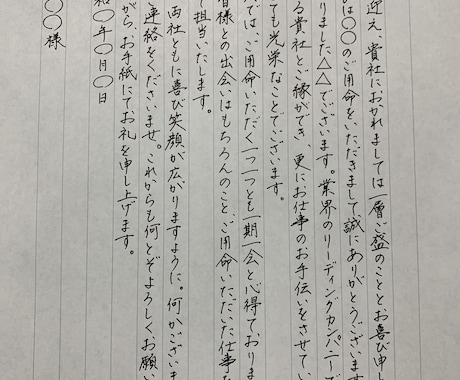 迎え、貴社におかれましては一層ご盛のこととお喜び申し
は〇〇のご用命をいただきまして、誠にありがとうございます
りました△△でございます。業界のリーディングカンパニーで
る貴社とご縁ができ、更にお仕事のお手伝いをさせてい
ても光栄なことでございます。
では、ご用命いただく一つ一つとも一期一会と心得ておりま
皆様との出会いはもちろんのこと、ご用命いただいた仕事な
て担当いたします。
両社ともに喜び笑顔が広がりますように。何かございま
連絡をくださいませ。これからも何とぞよろしくお願い
がら、お手紙にてお礼を申し上げます。
和〇年〇月〇日
〇〇様